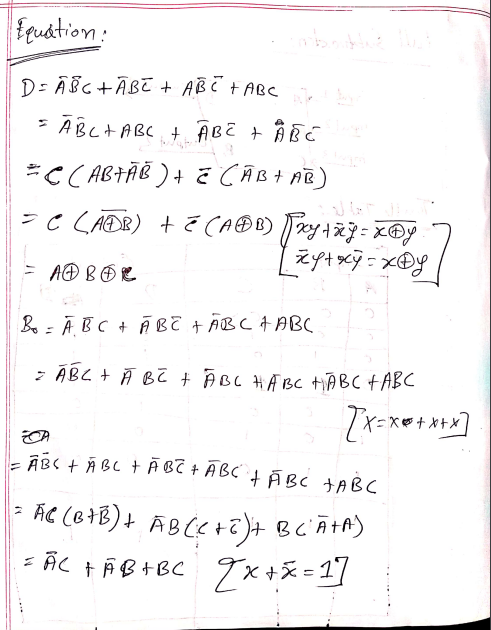 Equation:
D = A̅B̅C + A̅BC̅ + AB̅C̅ + ABC
= A̅B̅C + ABC + A̅BC̅ + AB̅C̅
= C (AB + A̅B̅) + C̅ (A̅B + AB̅)
= C (\overline{A⊕B}) + C̅ (A⊕B) [xy + x̅y̅ = \overline{x⊕y}
x̅y + xy̅ = x⊕y]
= A⊕B⊕C
B₀ = A̅B̅C + A̅BC̅ + A̅BC + ABC
= A̅B̅C + A̅BC̅ + A̅BC + A̅BC + A̅BC + ABC
[X = x + x + x]
= A̅B̅C + A̅BC + A̅BC̅ + A̅BC + A̅BC + ABC
= A̅C (B + B̅) + A̅B (C + C̅) + BC (A̅ + A)
= A̅C + A̅B + BC [x + x̅ = 1]